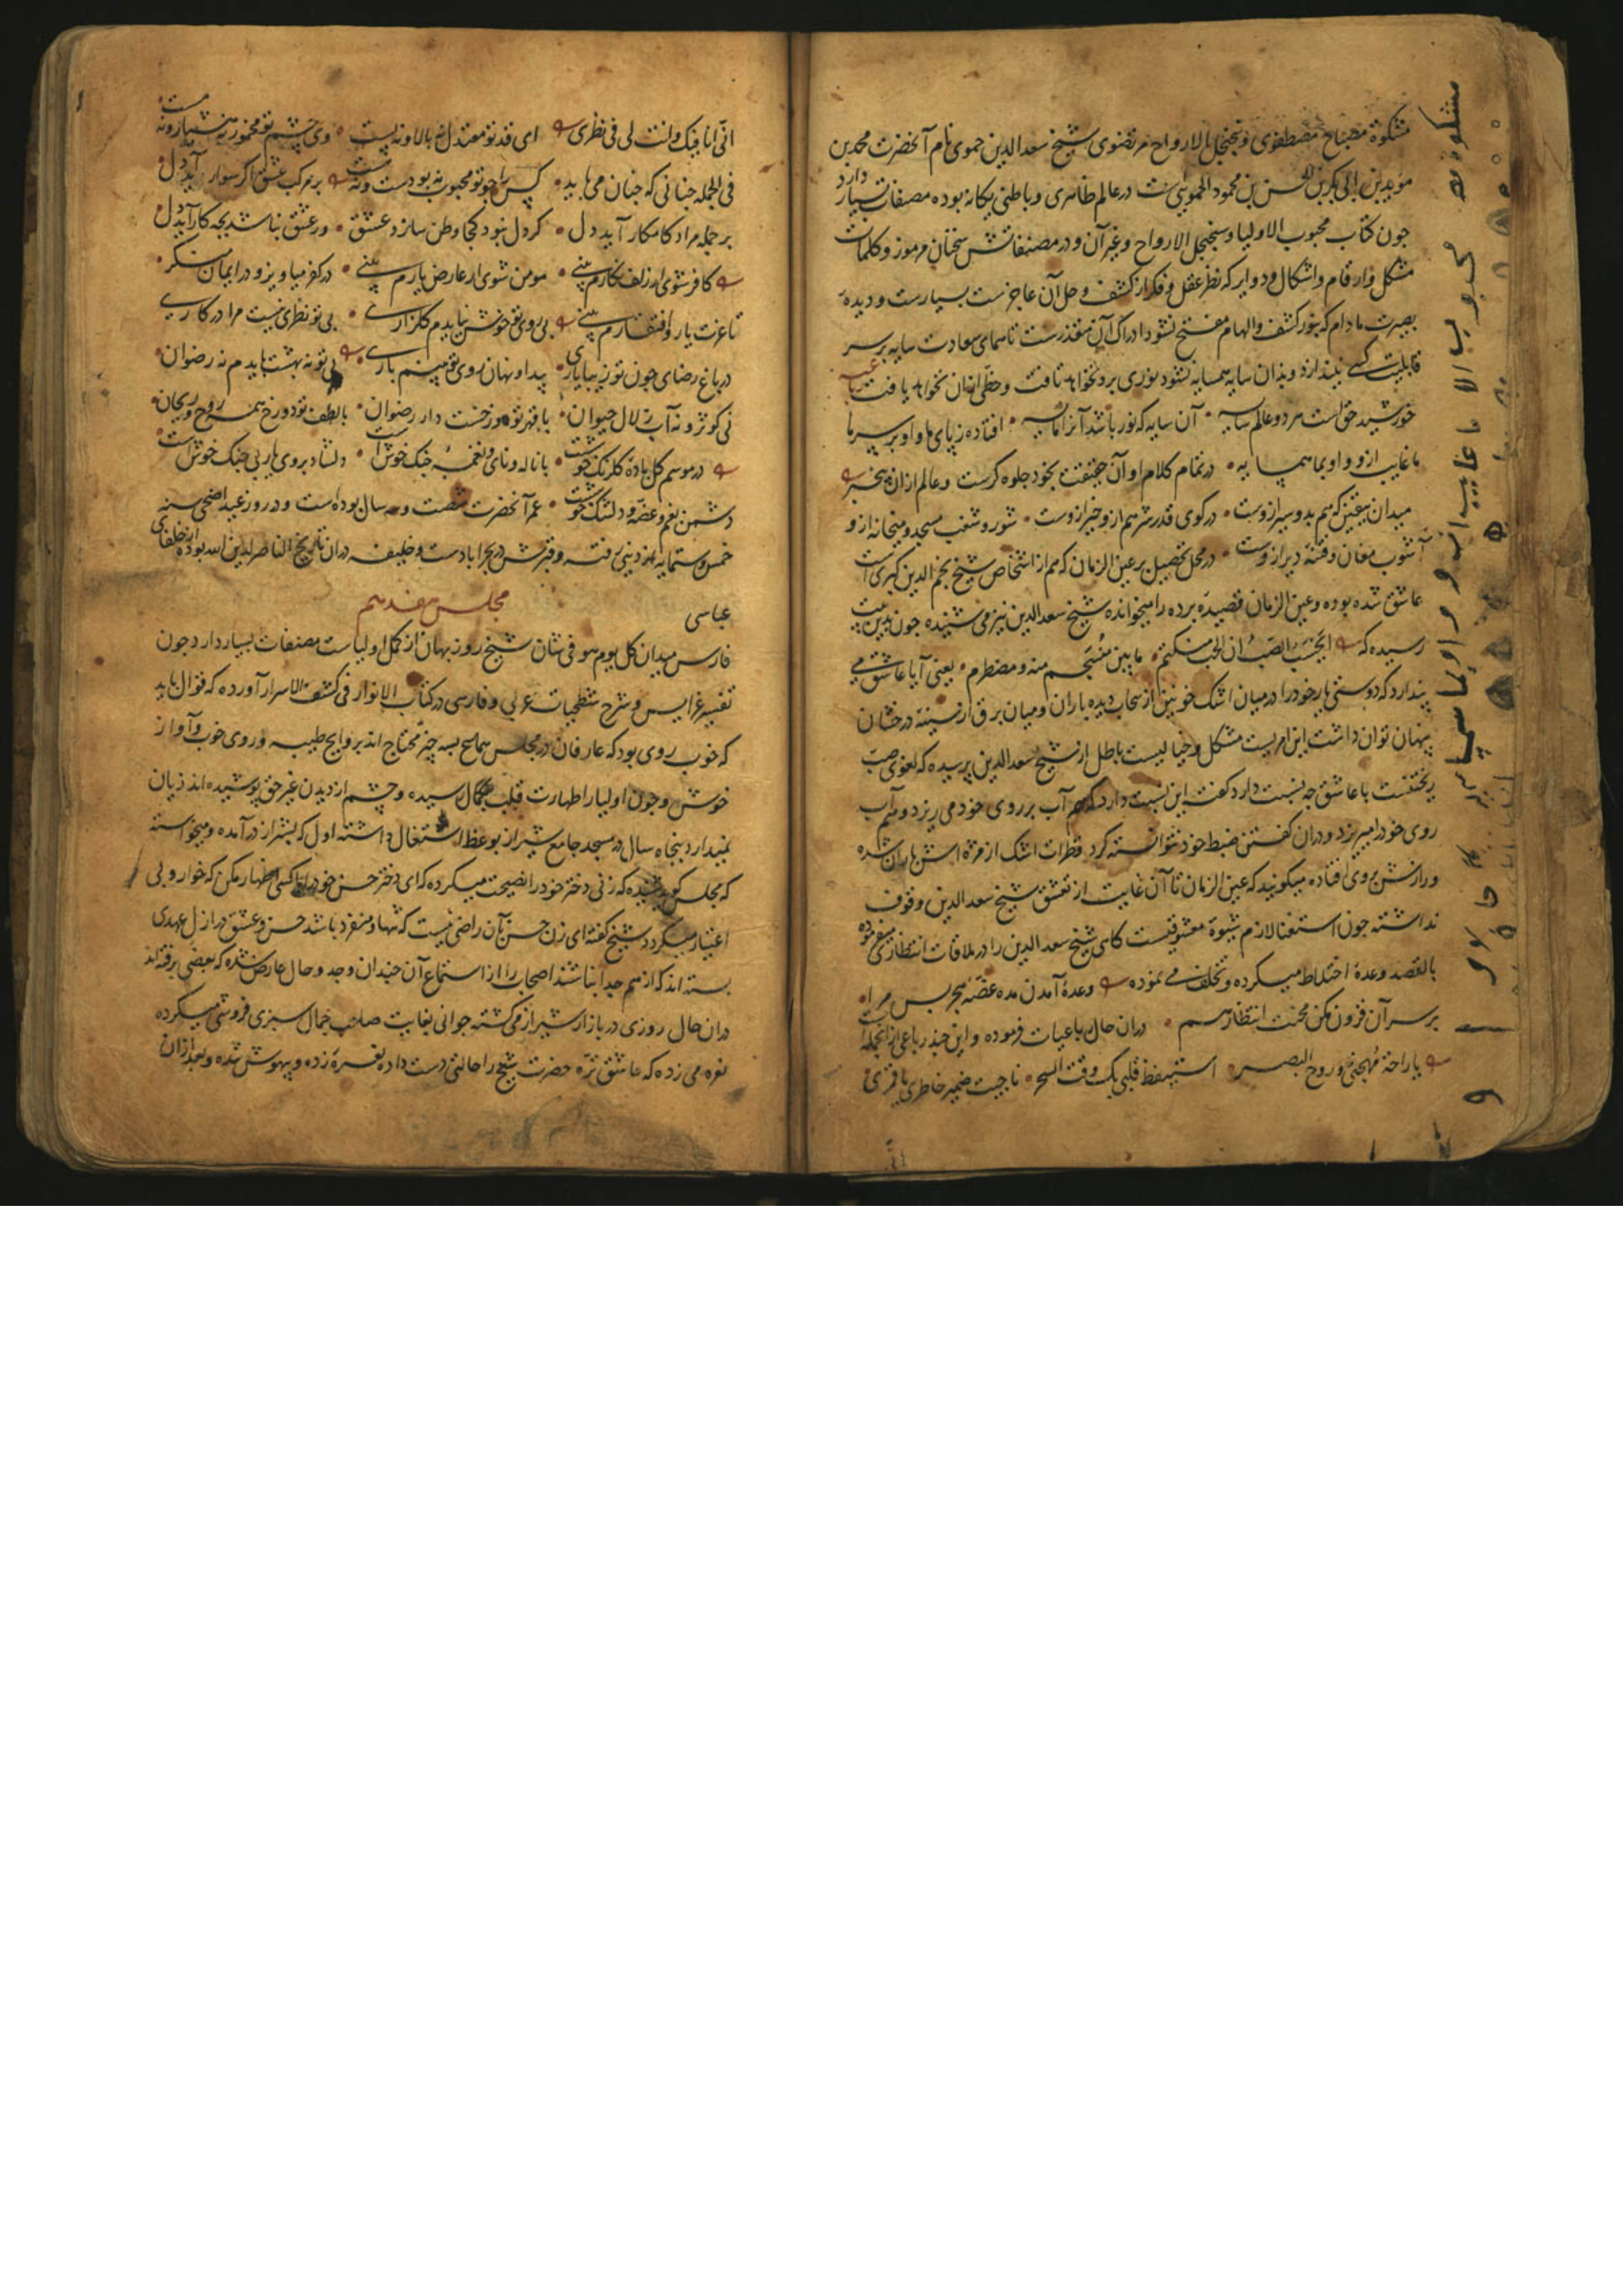 مشکوة مصباح مصطفوی و سجنجل الارواح مرتضوی شیخ سعد الدین حموی نام آنحضرت محمد بن
موید بن ابی بکر بن الحسن بن محمود الحمویی ست در عالم ظاهری و باطنی یکانه بوده مصنفات بسیار دارد
جون کتاب محبوب الاولیا و سجنجل الارواح و غیر آن و در مصنفاتش سخنان مرموز و کلمات
مشکل و ارقام و اشکال و دوایر که نظر عقل و فکر از کشف و حل آن عاجز ست بسیارست و دیده
بصیرت مادام که بنور کشف و الهام مفتح نشود ادراک آن متعذرست تا همای سعادت سایه بر سر
قابلیت کسی نیندازد و بدان سایه همسایه نشود نوری برو نخواهد تافت و حظی ازان نخواهد یافت رباعیه
خورشید حق است هر دو عالم سایه آن سایه که نور باشد آنرا مایه افتاده ز پای ما و او بر سر ما
ما غایب ازو و او بما همسایه در تمام کلام او آن حقیقت بخود جلوه کرست و عالم ازان بیخبر
میدان بیقین که هم بد و سیر ازوست در کوی قدر شر هم ازو خیر ازوست شور و شغب مسجد و میخانه ازو
آشوب مغان و فتنه دیر ازوست در محل تحصیل بر عین الزمان که هم از اشخاص شیخ نجم الدین کبری است
عاشق شده بوده و عین الزمان قصیده برده را میخوانده شیخ سعد الدین نیز می شنیده جون بدین بیت
رسیده که ایحسب الصب ان الحب منکتم ما بین منسجم منه و مضطرم یعنی آیا عاشق می
پندارد که دوستی یار خود را در میان اشک خونین از سحاب دیده باران و میان برق از سینه درخشان
پنهان توان داشت این امریست مشکل و خیالیست باطل از شیخ سعد الدین پرسیده که لغوی صب
ریختنست با عاشق چه نسبت دارد گفته این نسبت دارد که هم آب بر روی خود می ریزد و هم آب
روی خود را میریزد و دران گفتن ضبط خود نتوانسته کرد قطرات اشک از مژه اش باران شده
و رازش بر روی افتاده میگویند که عین الزمان تا آن غایت از تعشق شیخ سعد الدین وقوف
نداشته جون استغنا لازم شیوه معشوقیست کاهی شیخ سعد الدین را در ملاقات انتظاری میفرموده
بالقصد وعده اختلاط میکرده و تخلف می نموده وعده آمدن مده غصه هجر بس مرا
بر سر آن فزون مکن محنت انتظار هم دران حال رباعیات فرموده و این چند رباعی از آنجمله است
یا راحة مهجتی و روح البصر استیقظ قلبی بک وقت السحر ناجیت ضمیر خاطری یا قمری
انی انا فیک و انت لی فی نظری ای قد تو معتدل نه بالا و نه پست وی چشم تو مخمور نه هشیار و نه مست
فی الجمله چنانی که چنان می باید کس را چو تو محبوب نه بودست و نه هست بر مرکب عشق اگر سوار آید دل
بر جمله مراد کامکار آید دل گر دل نبود کجا وطن سازد عشق ور عشق نباشد بچه کار آید دل
کافر شوی ار زلف نکارم بینی مومن شوی ار عارض یارم بینی در کفر میاویز و در ایمان منکر
تا عزت یار و افتقارم بینی بی روی تو خوش نیایدم گلزاری بی تو نظری نیست مرا در کاری
در باغ رضای جون تو زیبا یاری پیدا و نهان روی تو بینم باری بی تو نه بهشت بایدم نه رضوان
نی کوثر و نه آب زلال حیوان با قهر تو دوزخست دار رضوان با لطف تو دوزخ همه روح و ریحان
در موسم گل باده گلرنگ خوشست با ناله و نامی و نغمه چنگ خوشست دلشاد بروی یار بی جنگ خوشست
دشمن بغم و غصه و دلتنگ خوشست عمر آنحضرت شصت و سه سال بوده است و در روز عید اضحی سنه
خمس و ستمایه از دینی رفته و قبرش در بحرابادست و خلیفه دران تاریخ الناصر لدین الله بوده از خلفای
عباسی
مجلس هفدهم
فارس میدان کل یوم هو فی شان شیخ روزبهان از کمل اولیاست مصنفات بسیار دارد جون
تفسیر عرایس و شرح شطحیات عربی و فارسی در کتاب الانوار فی کشف الاسرار آورده که قوال باید
که خوب روی بود که عارفان در مجلس سماع بسه چیز محتاج اند بروایح طیبه و روی خوب و آواز
خوش و جون اولیا را طهارت قلب بکمال رسیده و چشم از دیدن غیر حق پوشیده اند زیان
نمیدارد پنجاه سال در مسجد جامع شیراز بوعظ اشتغال داشته اول که بشیراز درآمده و میخواسته
که مجلس کوید شنیده که زنی دختر خود را نصیحت میکرده که ای دختر حسن خود را با کسی اظهار مکن که خوار و بی
اعتبار میگردد شیخ کفته ای زن حسن بآن راضی نیست که تنها و منفرد باشد حسن و عشق در ازل عهدی
بسته اند که از هم جدا نباشند اصحاب را از استماع آن چندان وجد و حال عارض شده که بعضی برفته اند
دران حال روزی در بازار شیراز می گشته جوانی بغایت صاحب جمال سبزی فروشی میکرده
نعره می زده که عاشق تره حضرت شیخ را حالتی دست داده نعره زده و بیهوش شده و بعد ازان